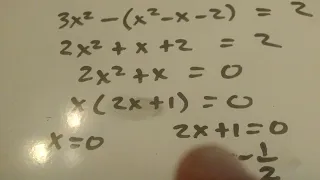 3x² - (x² - x - 2) = 2
2x² + x + 2 = 2
2x² + x = 0
x(2x + 1) = 0
x = 0 2x + 1 = 0
- 1/2